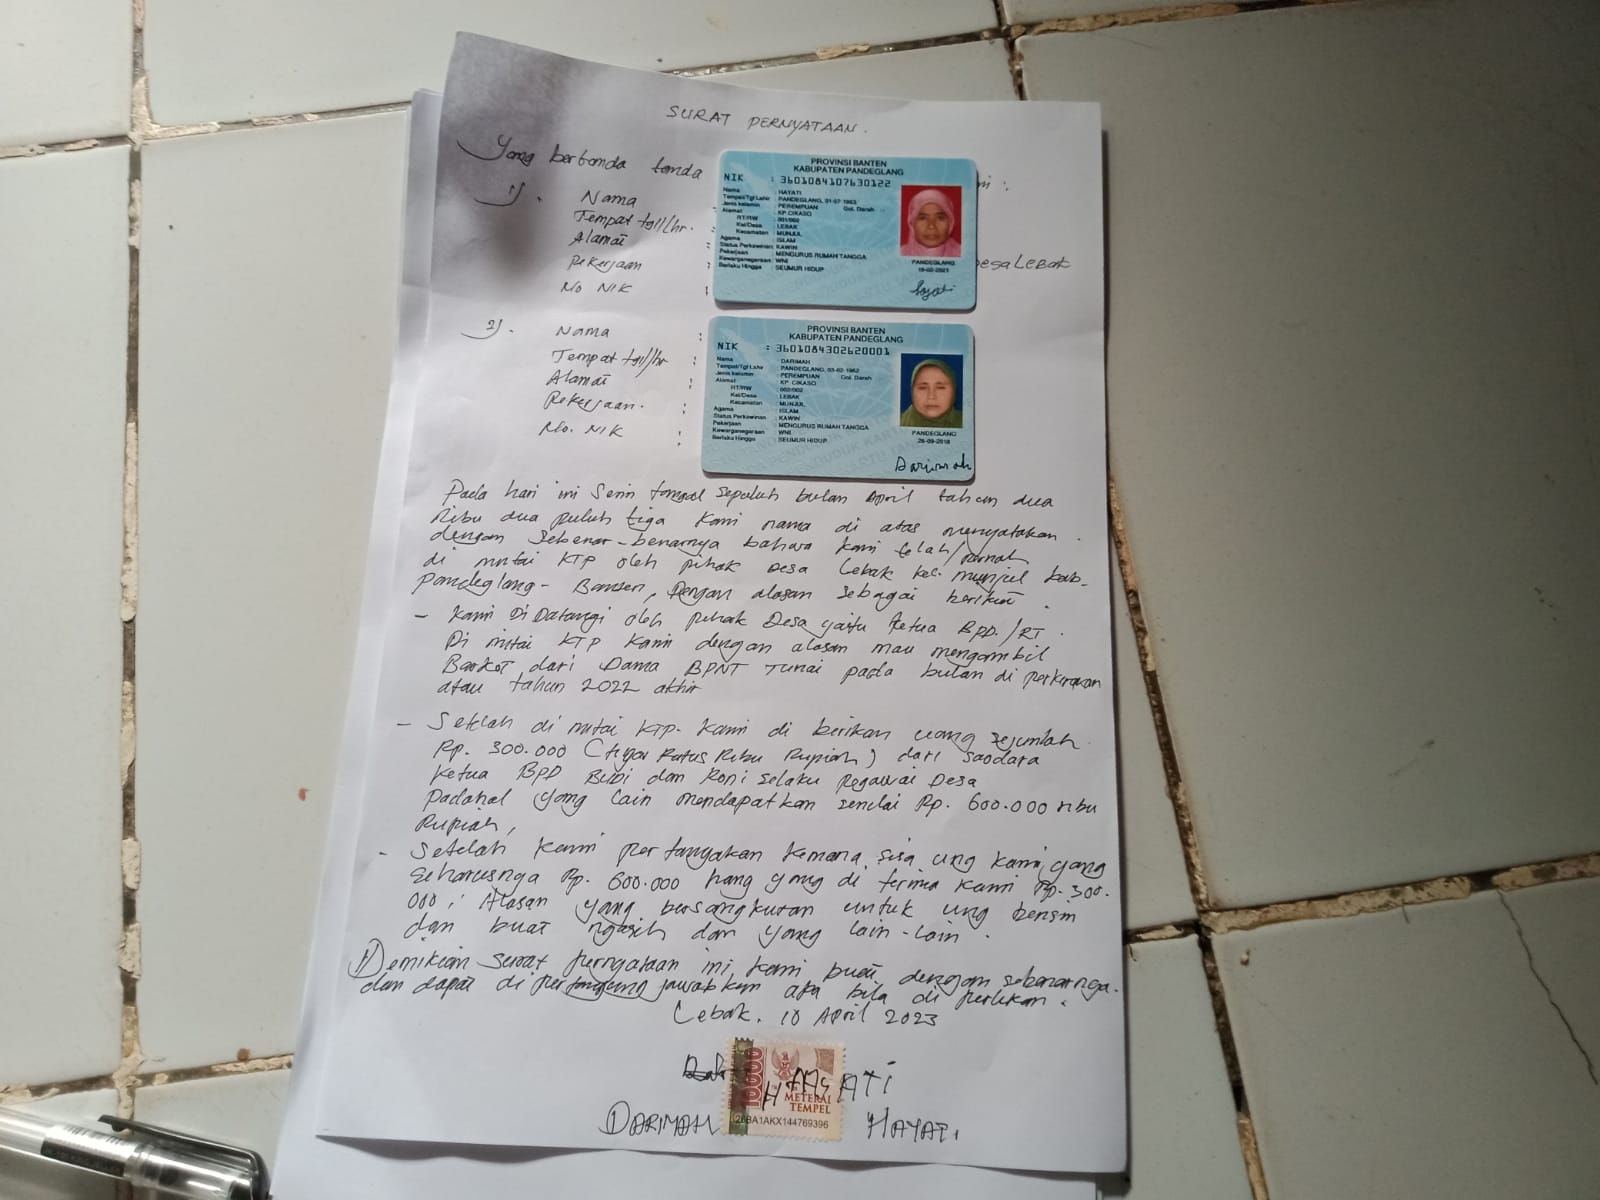 SURAT PERNYATAAN.
Yang bertanda tanda
ni :
1). Nama
Tempat tgl/hr. :
Alamat :
Pekerjaan : Desa Lebak
No NIK :
PROVINSI BANTEN
KABUPATEN PANDEGLANG
NIK : 3601084107630122
Nama : HAYATI
Tempat/Tgl Lahir : PANDEGLANG, 01-07-1963
Jenis kelamin : PEREMPUAN Gol. Darah
Alamat : KP CIKASO
RT/RW : 001/002
Kel/Desa : LEBAK
Kecamatan : MUNJUL
Agama : ISLAM
Status Perkawinan : KAWIN
Pekerjaan : MENGURUS RUMAH TANGGA
Kewarganegaraan : WNI
Berlaku Hingga : SEUMUR HIDUP
PANDEGLANG
18-02-2021
Hayati
2). Nama :
Tempat tgl/hr :
Alamat :
Pekerjaan. :
No. NIK :
PROVINSI BANTEN
KABUPATEN PANDEGLANG
NIK : 3601084302620001
Nama : DARIMAH
Tempat/Tgl Lahir : PANDEGLANG, 03-02-1962
Jenis kelamin : PEREMPUAN Gol. Darah
Alamat : KP CIKASO
RT/RW : 002/002
Kel/Desa : LEBAK
Kecamatan : MUNJUL
Agama : ISLAM
Status Perkawinan : KAWIN
Pekerjaan : MENGURUS RUMAH TANGGA
Kewarganegaraan : WNI
Berlaku Hingga : SEUMUR HIDUP
PANDEGLANG
26-09-2018
Darimah
Pada hari ini Senin tanggal sepuluh bulan April tahun dua
Ribu dua puluh tiga kami nama di atas menyatakan
dengan sebenar-benarnya bahwa kami telah/pernah
di mintai KTP oleh pihak Desa Lebak kec. munjul kab-
Pandeglang - Banten, Dengan alasan sebagai berikut.
- Kami Di Datangi oleh pihak Desa yaitu Ketua BPD./RT.
Di mintai KTP kami dengan alasan mau mengambil
Barkot dari Dana BPNT Tunai pada bulan di perkirakan
atau tahun 2022 akhir
- Setelah di mintai KTP. Kami di berikan uang sejumlah
Rp. 300.000 (tiga Ratus Ribu Rupiah) dari saodara
Ketua BPD Budi dan Roni selaku Pegawai Desa
padahal yang lain mendapatkan senilai Rp. 600.000 ribu
Rupiah,
- Setelah kami pertanyakan kemana sisa ung kami yang
seharusnya Rp. 600.000 hang yang di terima kami Rp. 300.
000; Alasan yang bersangkutan untuk ung bensin
dan buat ngasih dan yang lain-lain.
Demikian surat pernyataan ini kami buat dengan sebenarnya.
dan dapat di pertanggung jawabkan apa bila di perlukan.
Lebak. 10 April 2023
HAYATI
10000
METERAI
TEMPEL
DARIMAH
HAYATI